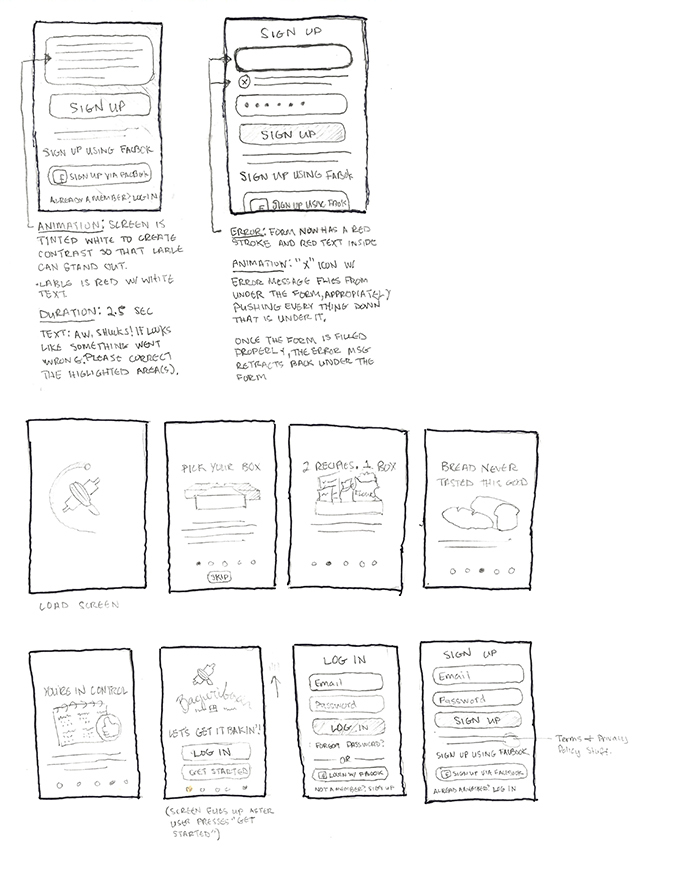 SIGN UP
SIGN UP USING FACBOK
SIGN UP VIA FACBOK
ALREADY A MEMBER? LOG IN
ANIMATION: SCREEN IS
TINTED WHITE TO CREATE
CONTRAST SO THAT LABLE
CAN STAND OUT.
-LABLE IS RED W/ WHITE
TEXT
DURATION: 2.5 SEC
TEXT: AW, SHUCKS! IT LOOKS
LIKE SOMETHING WENT
WRONG. PLEASE CORRECT
THE HIGHLIGHTED AREA(S).
SIGN UP
SIGN UP
SIGN UP USING FACBOK
SIGN UP USING FBOOK
ERROR: FORM NOW HAS A RED
STROKE AND RED TEXT INSIDE
ANIMATION: "X" ICON W/
ERROR MESSAGE FLIES FROM
UNDER THE FORM, APPROPIATELY
PUSHING EVERY THING DOWN
THAT IS UNDER IT.
ONCE THE FORM IS FILLED
PROPERLY, THE ERROR MSG
RETRACTS BACK UNDER THE
FORM
LOAD SCREEN
PICK YOUR BOX
SKIP
2 RECIPIES. 1 BOX
BREAD NEVER
TASTED THIS GOOD
YOU'RE IN CONTROL
LET'S GET IT BAKIN'!
LOG IN
GET STARTED
(SCREEN FLIES UP AFTER
USER PRESSES "GET
STARTED")
LOG IN
Email
Password
LOG IN
FORGOT PASSWORD?
OR
LOGIN W/ FACBOK
NOT A MEMBER? SIGN UP
SIGN UP
Email
Password
SIGN UP
Terms & Privacy
Policy Stuff.
SIGN UP USING FACBOOK
SIGN UP VIA FACBOOK
ALREAD A MEMBER? LOG IN